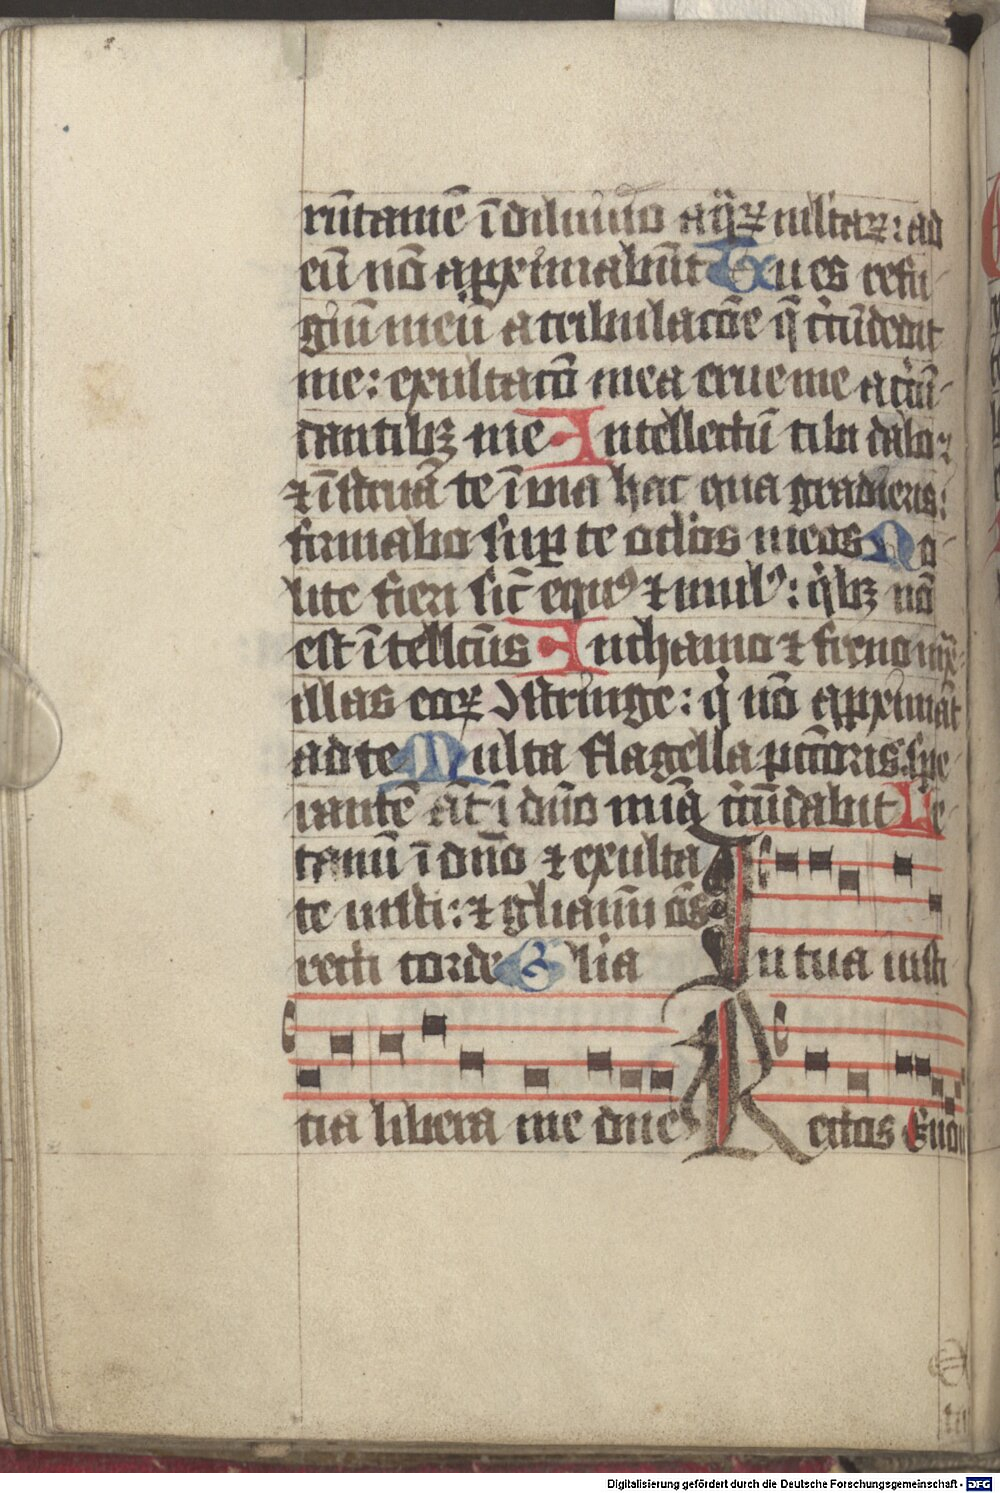 rūtamē ī diluuio aq̄ꝝ mltaꝝ: ad
eū nō apꝓximabūt Tu es refu
giū meū a tribulacōe q̄ c̓cūdedit
me: exultacō mea erue me a c̓cū
dantibꝫ me Intellectū tibi dabo ⁊
⁊ īstruā te ī uia hac qua gradieris:
firmabo suꝑ te oclos meos No
lite fieri sic̄ equꝰ ⁊ mulꝰ: q̓bꝫ nō
est ītellcūs In chamo ⁊ freno mx̄
illas eoꝝ ꝯstringe: q̓ nō apꝓximāt
ad te Multa flagella pc̄coris spe
rantē āt ī dn̄o mīa c̓cūdabit Le
tamī ī dn̄o ⁊ exulta
te iusti: ⁊ gliamī oēs
recti corde Glia In tua iusti
cia libera me dn̄e Rectos
Digitalisierung gefördert durch die Deutsche Forschungsgemeinschaft - DFG